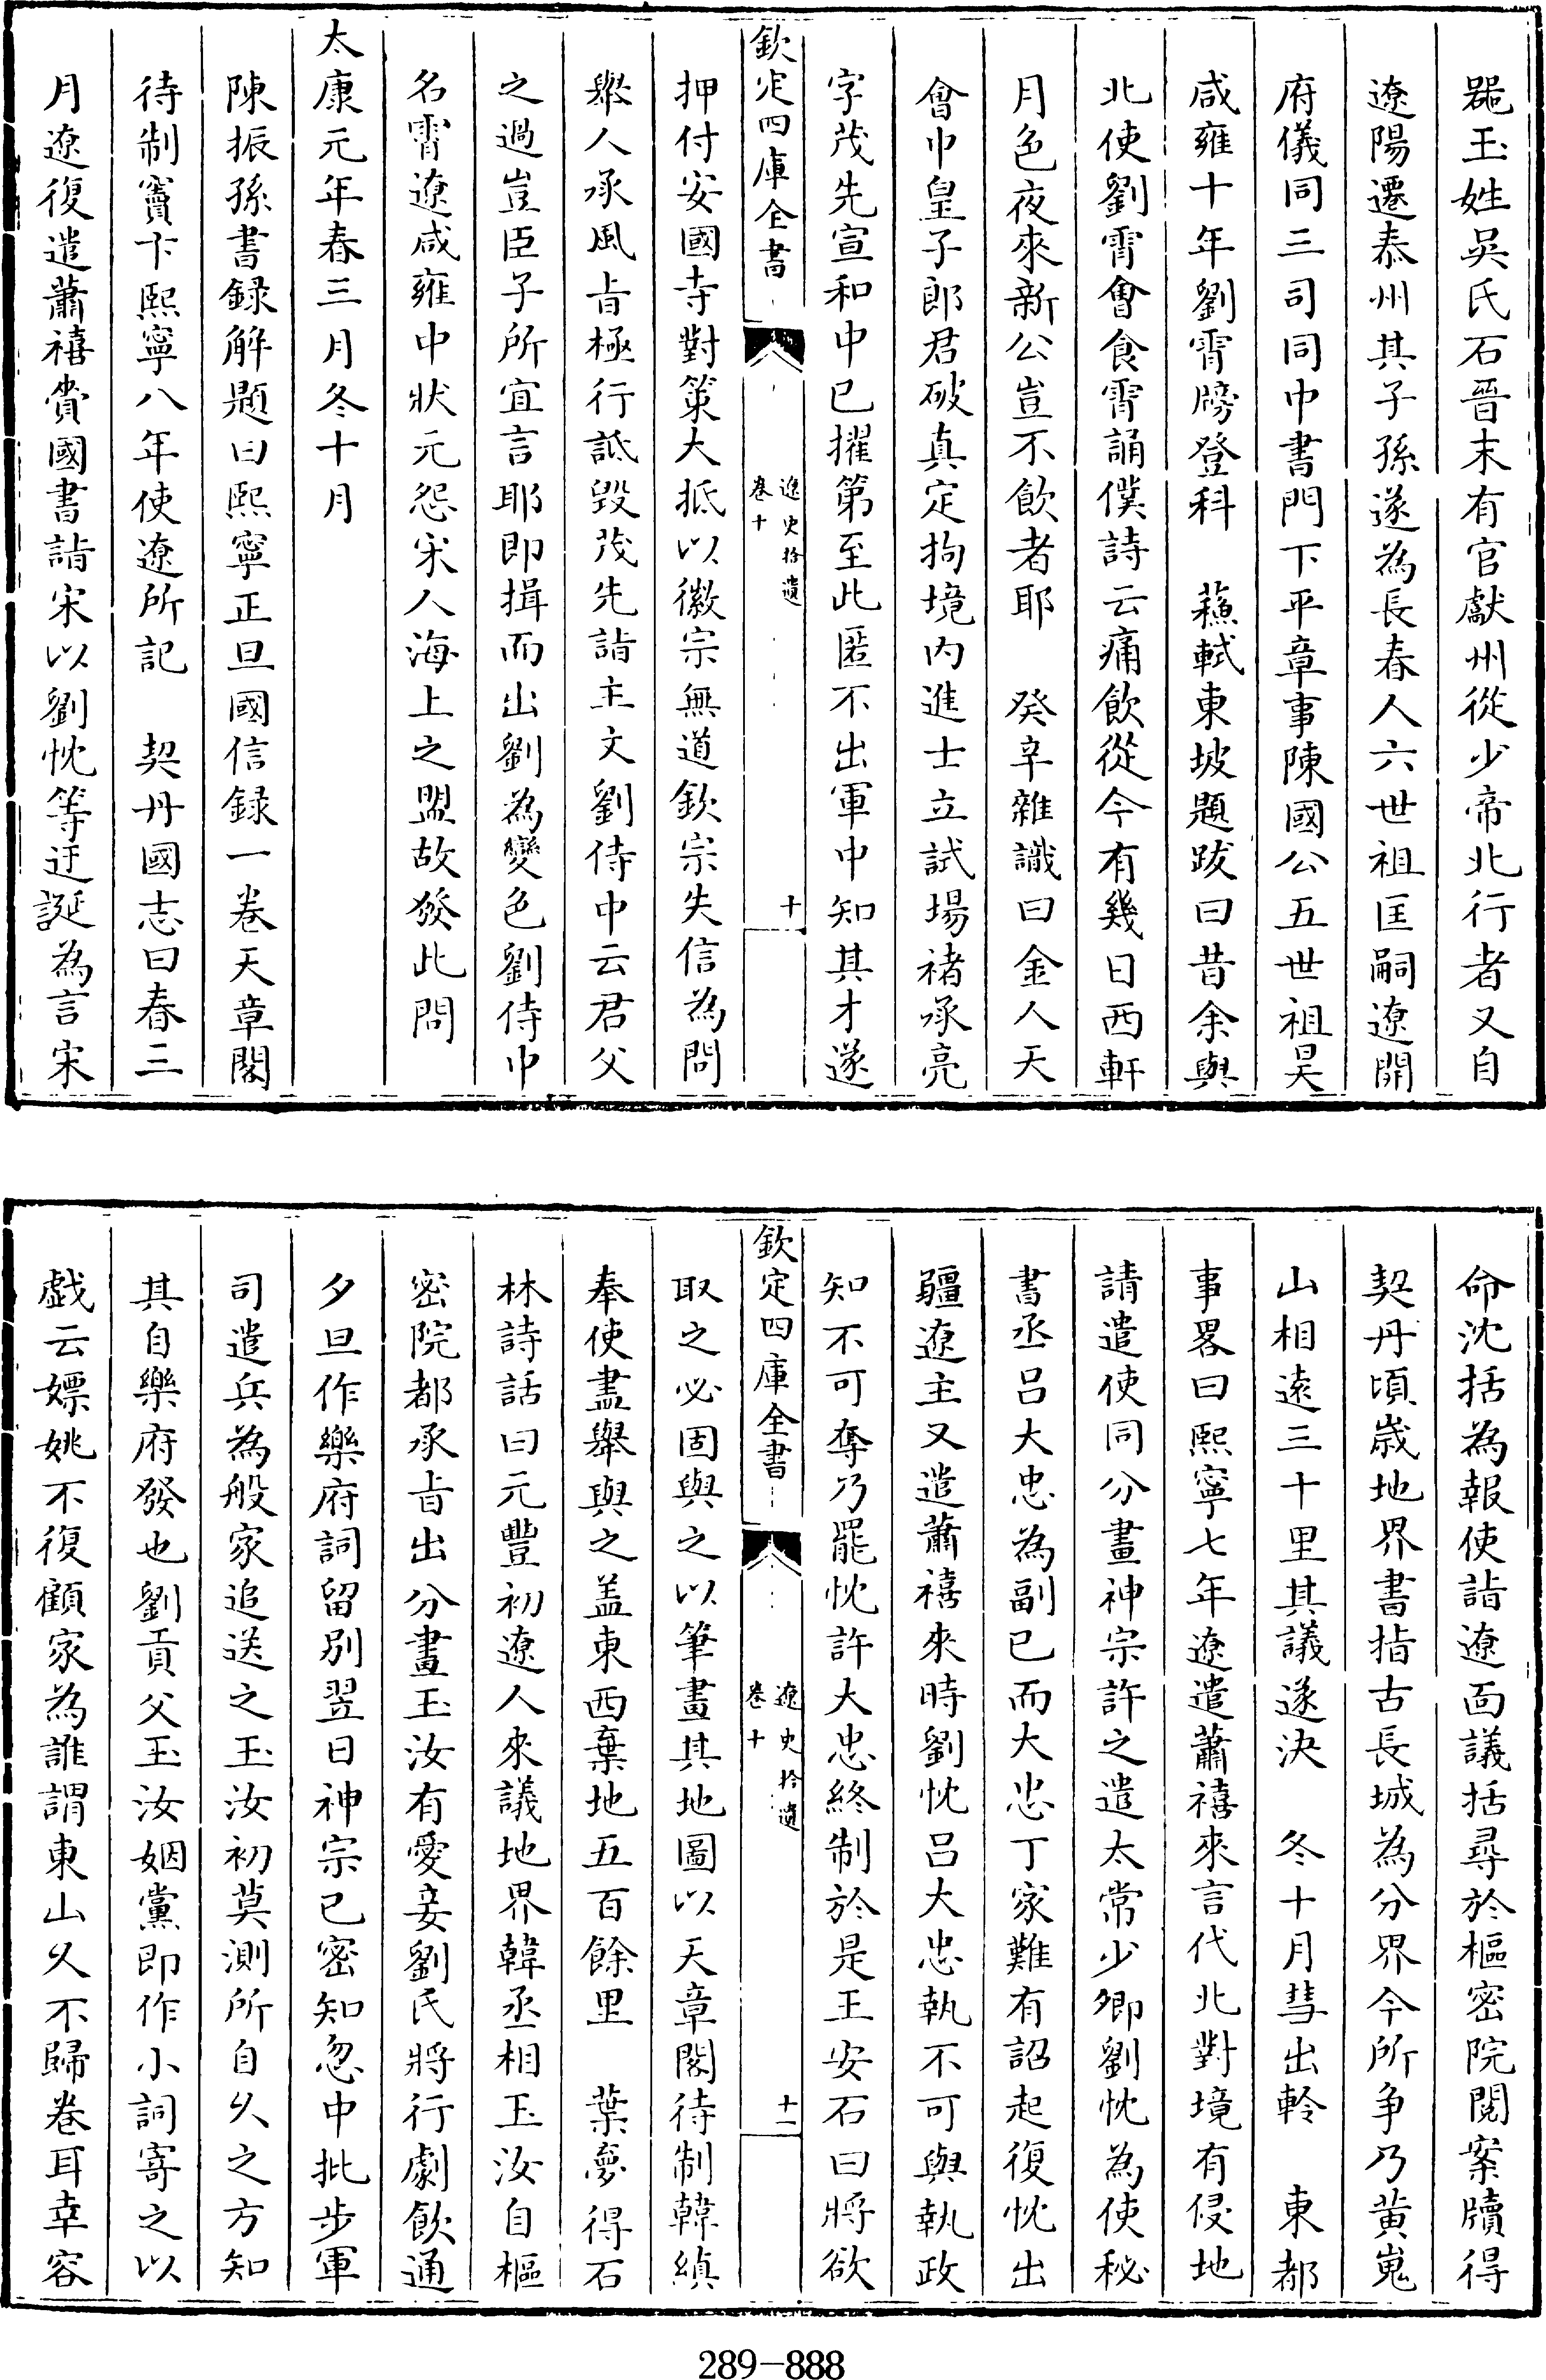 噐玉姓吳氏石晉末有官獻州從少帝北行者又自
遼陽遷泰州其子孫遂為長春人六世祖匡嗣遼開
府儀同三司同中書門下平章事陳國公五世祖昊
咸雍十年劉霄牓登科　蘓軾東坡題跋曰昔余與
北使劉霄會食霄誦僕詩云痛飲從今有幾日西軒
月色夜來新公豈不飲者耶　癸辛雜識曰金人天
會中皇子郎君破真定拘境内進士立試場禇承亮
字茂先宣和中已擢第至此匿不出軍中知其才遂
欽定四庫全書
遼史拾遺
卷十
十
押付安國寺對策大抵以徽宗無道欽宗失信為問
舉人承風㫖極行詆毀茂先詣主文劉侍中云君父
之過豈臣子所宜言耶即揖而出劉為變色劉侍中
名霄遼咸雍中狀元怨宋人海上之盟故發此問
太康元年春三月冬十月
陳振孫書録解題曰熙寧正旦國信録一卷天章閣
待制竇卞熙寧八年使遼所記　契丹國志曰春三
月遼復遣蕭禧賫國書詣宋以劉忱等迂誕為言宋
命沈括為報使詣遼面議括尋於樞密院閱案牘得
契丹頃歲地界書指古長城為分界今所爭乃黄嵬
山相逺三十里其議遂決　冬十月彗出軫　東都
事畧曰熙寧七年遼遣蕭禧來言代北對境有侵地
請遣使同分畫神宗許之遣太常少卿劉忱為使秘
書丞吕大忠為副已而大忠丁家難有詔起復忱出
疆遼主又遣蕭禧來時劉忱吕大忠執不可與執政
知不可奪乃罷忱許大忠終制於是王安石曰將欲
欽定四庫全書
遼史拾遺
卷十
十一
取之必固與之以筆畫其地圖以天章閣待制韓縝
奉使盡舉與之盖東西棄地五百餘里　葉夢得石
林詩話曰元豐初遼人來議地界韓丞相玉汝自樞
密院都承㫖出分畫玉汝有愛妾劉氏將行劇飲通
夕旦作樂府詞留别翌日神宗已密知忽中批步軍
司遣兵為般家追送之玉汝初莫測所自久之方知
其自樂府發也劉貢父玉汝姻黨即作小詞寄之以
戲云嫖姚不復顧家為誰謂東山久不歸卷耳幸容
289-888